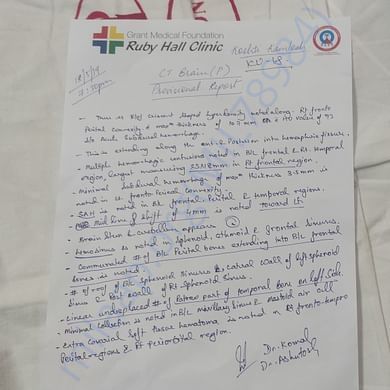 Grant Medical Foundation
Ruby Hall Clinic
CT Brain (P)
Provisional Report
- There is E/o Crescent shaped hyperdensity noted along Rt fronto
Parietal Convexity of max thickness of
s/o Acute Subdural hemorrhage.
- This is extending along the ant & Posterior interhemispheric fissure.
- Multiple hemorrhagic contusions noted in B/L frontal & Rt. temporal
region, Largest measuring in Rt frontal region.
- Minimal Subdural hemorrhage of max thickness 3.5mm is
noted in Lt fronto Parietal Convexity.
- SAH is noted in B/L frontal, Parietal & temporal regions.
- Midline shift of 4mm is noted toward Lt.
- Brain stem & Cerebellum appears
- Hemosinus is noted in Sphenoid, ethmoid & frontal Sinuses.
- Communited # of B/L Parietal bones extending into B/L frontal
bones is noted.
- # of roof of B/L Sphenoid Sinuses & Lateral wall of left sphenoid
Sinus & wall of Rt Sphenoid Sinus.
- Linear undisplaced # of Petrous part of temporal bone on left side.
- Minimal Collection is noted in B/L maxillary Sinus & mastoid air cell
- Extra Coronial Soft tissue hematoma is noted in Rt fronto-temporo
Parietal regions & Rt Periorbital region.
Dr. Komal
Dr. Ashutosh